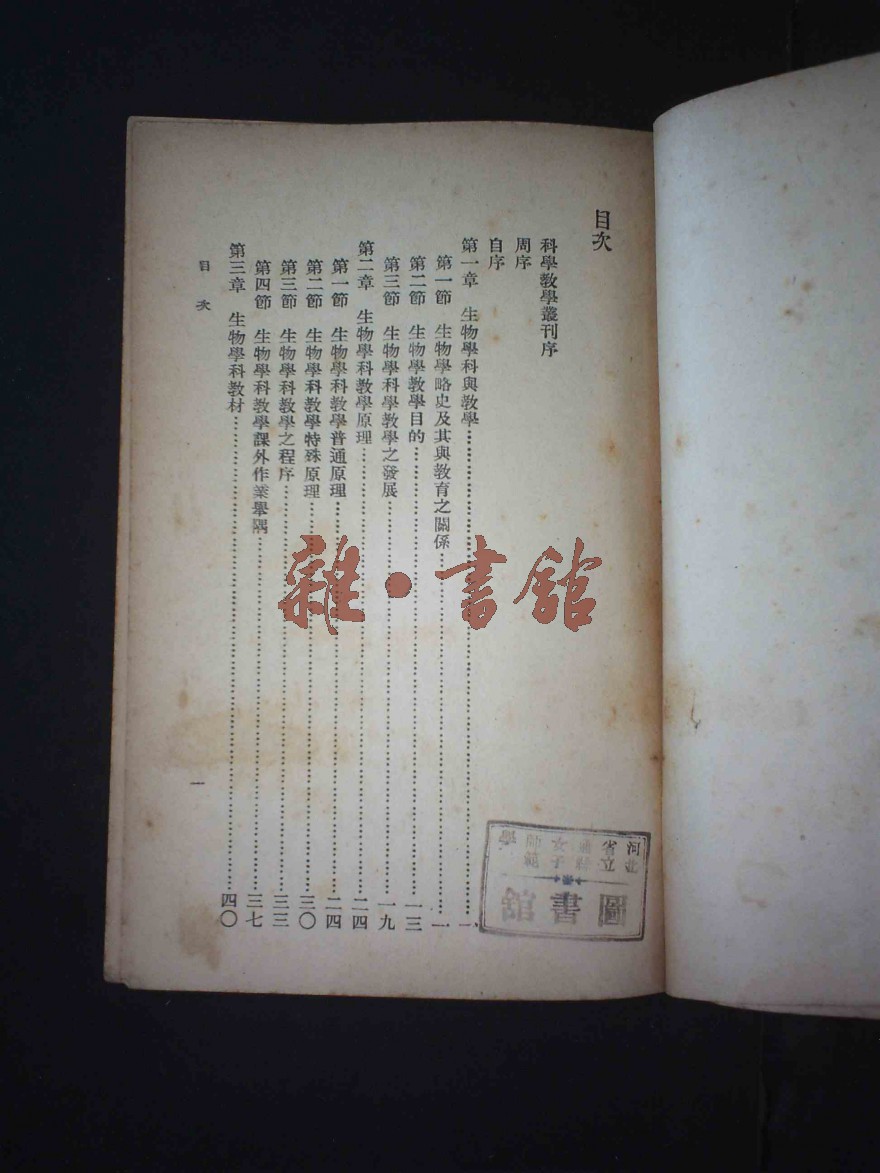 目次
科學教學叢刊序
周序
自序
第一章 生物學科與教學……一
第一節 生物學略史及其與教育之關係……一
第二節 生物學教學目的……一三
第三節 生物學科學教學之發展……一九
第二章 生物學科教學原理……二四
第一節 生物學科教學普通原理……二四
第二節 生物學科教學特殊原理……三〇
第三節 生物學科教學之程序……三三
第四節 生物學科教學課外作業舉隅……三七
第三章 生物學科教材……四〇
目次 一
雜·書館
河北
省立
女子
師範
圖書館